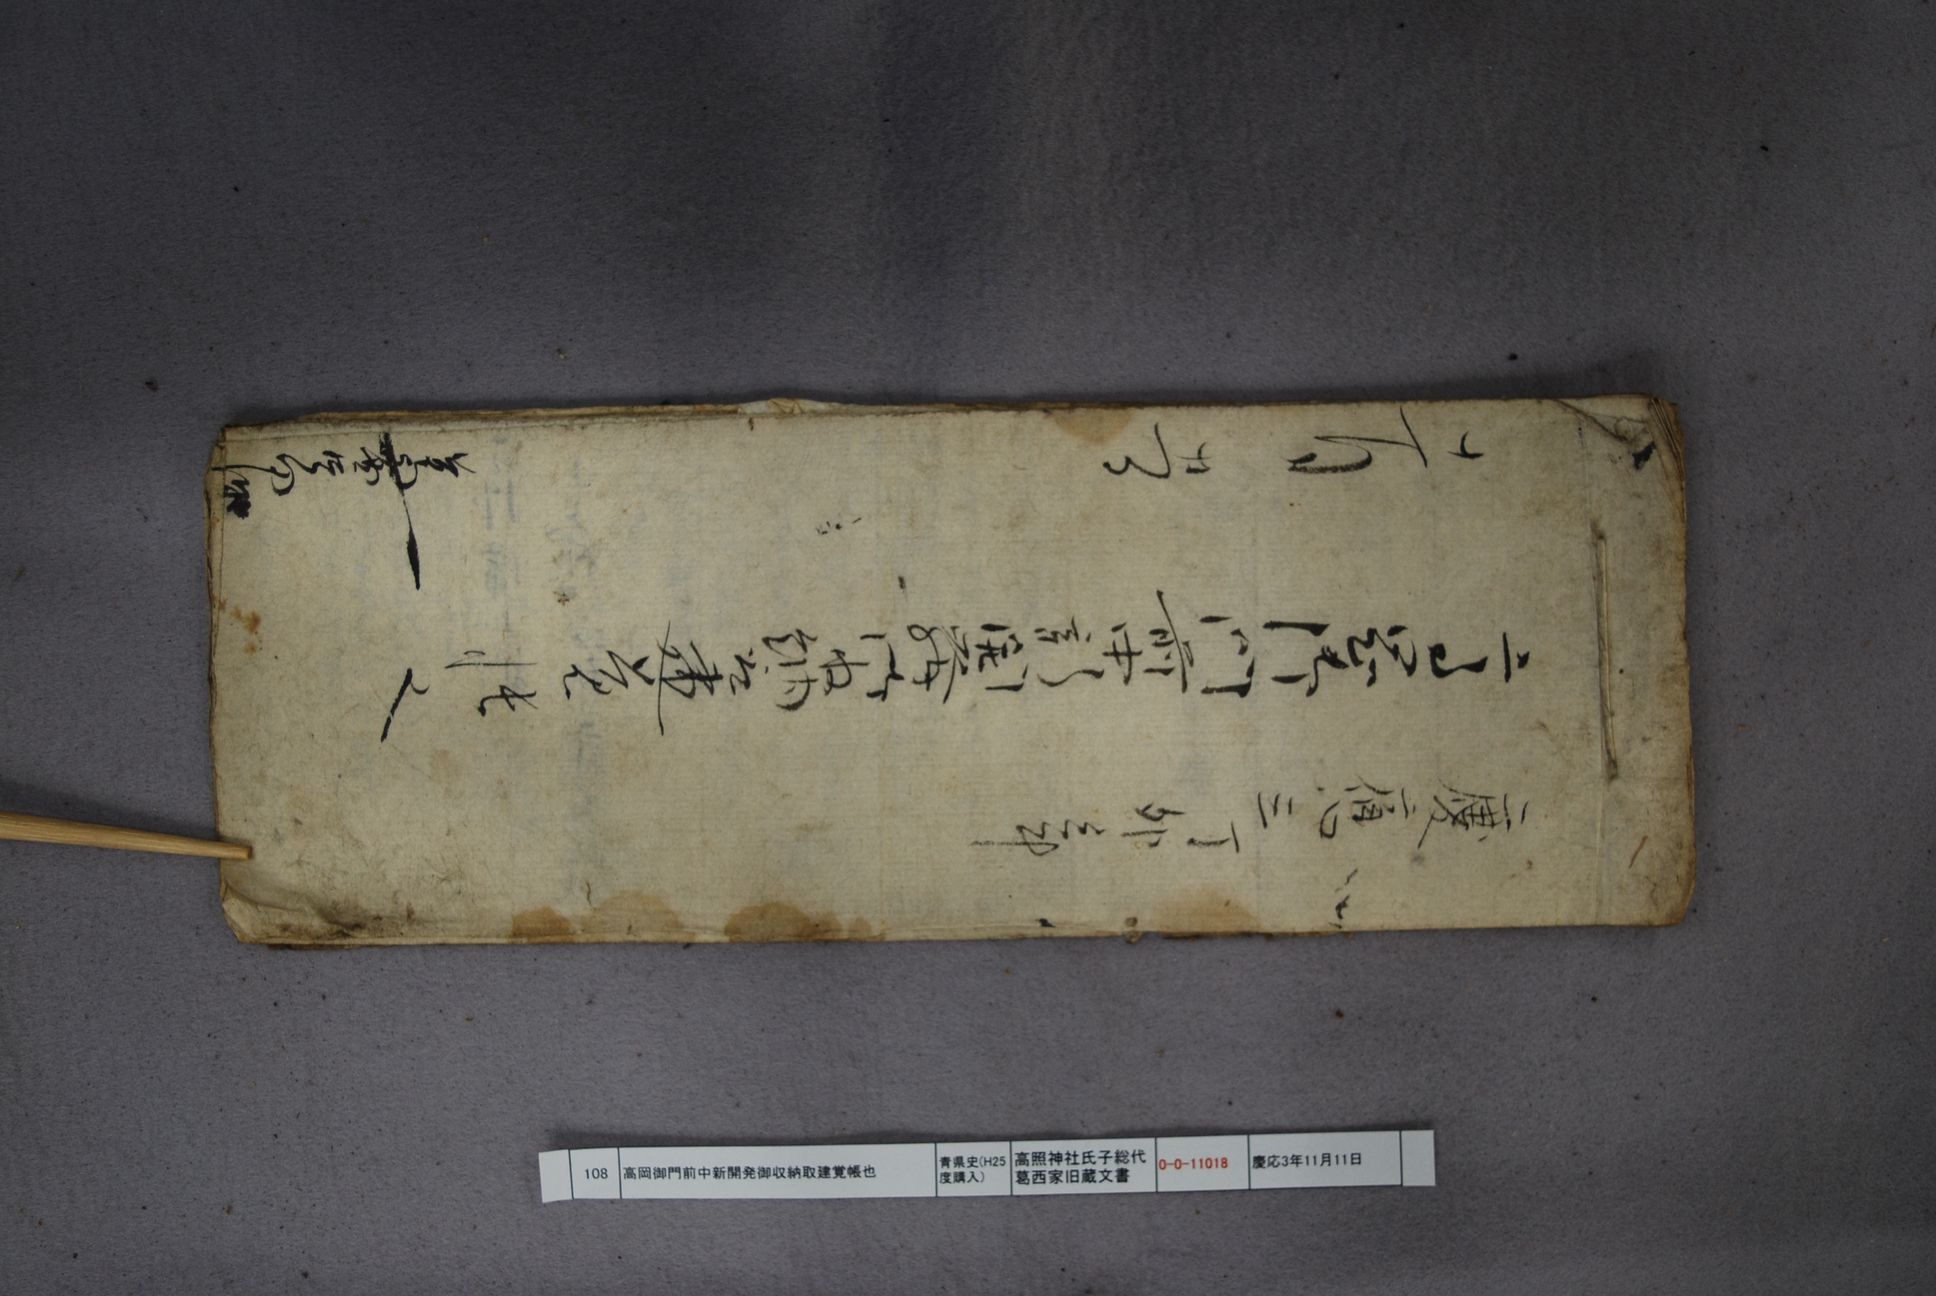 慶應三丁卯年
高岡御門前中新開発御収納取建覚
帳也
十一月
108
高岡御門前中新開発御収納取建覚帳也
青県史(H25
度購入)
高照神社氏子総代
葛西家旧蔵文書
0-0-11018
慶応3年11月11日